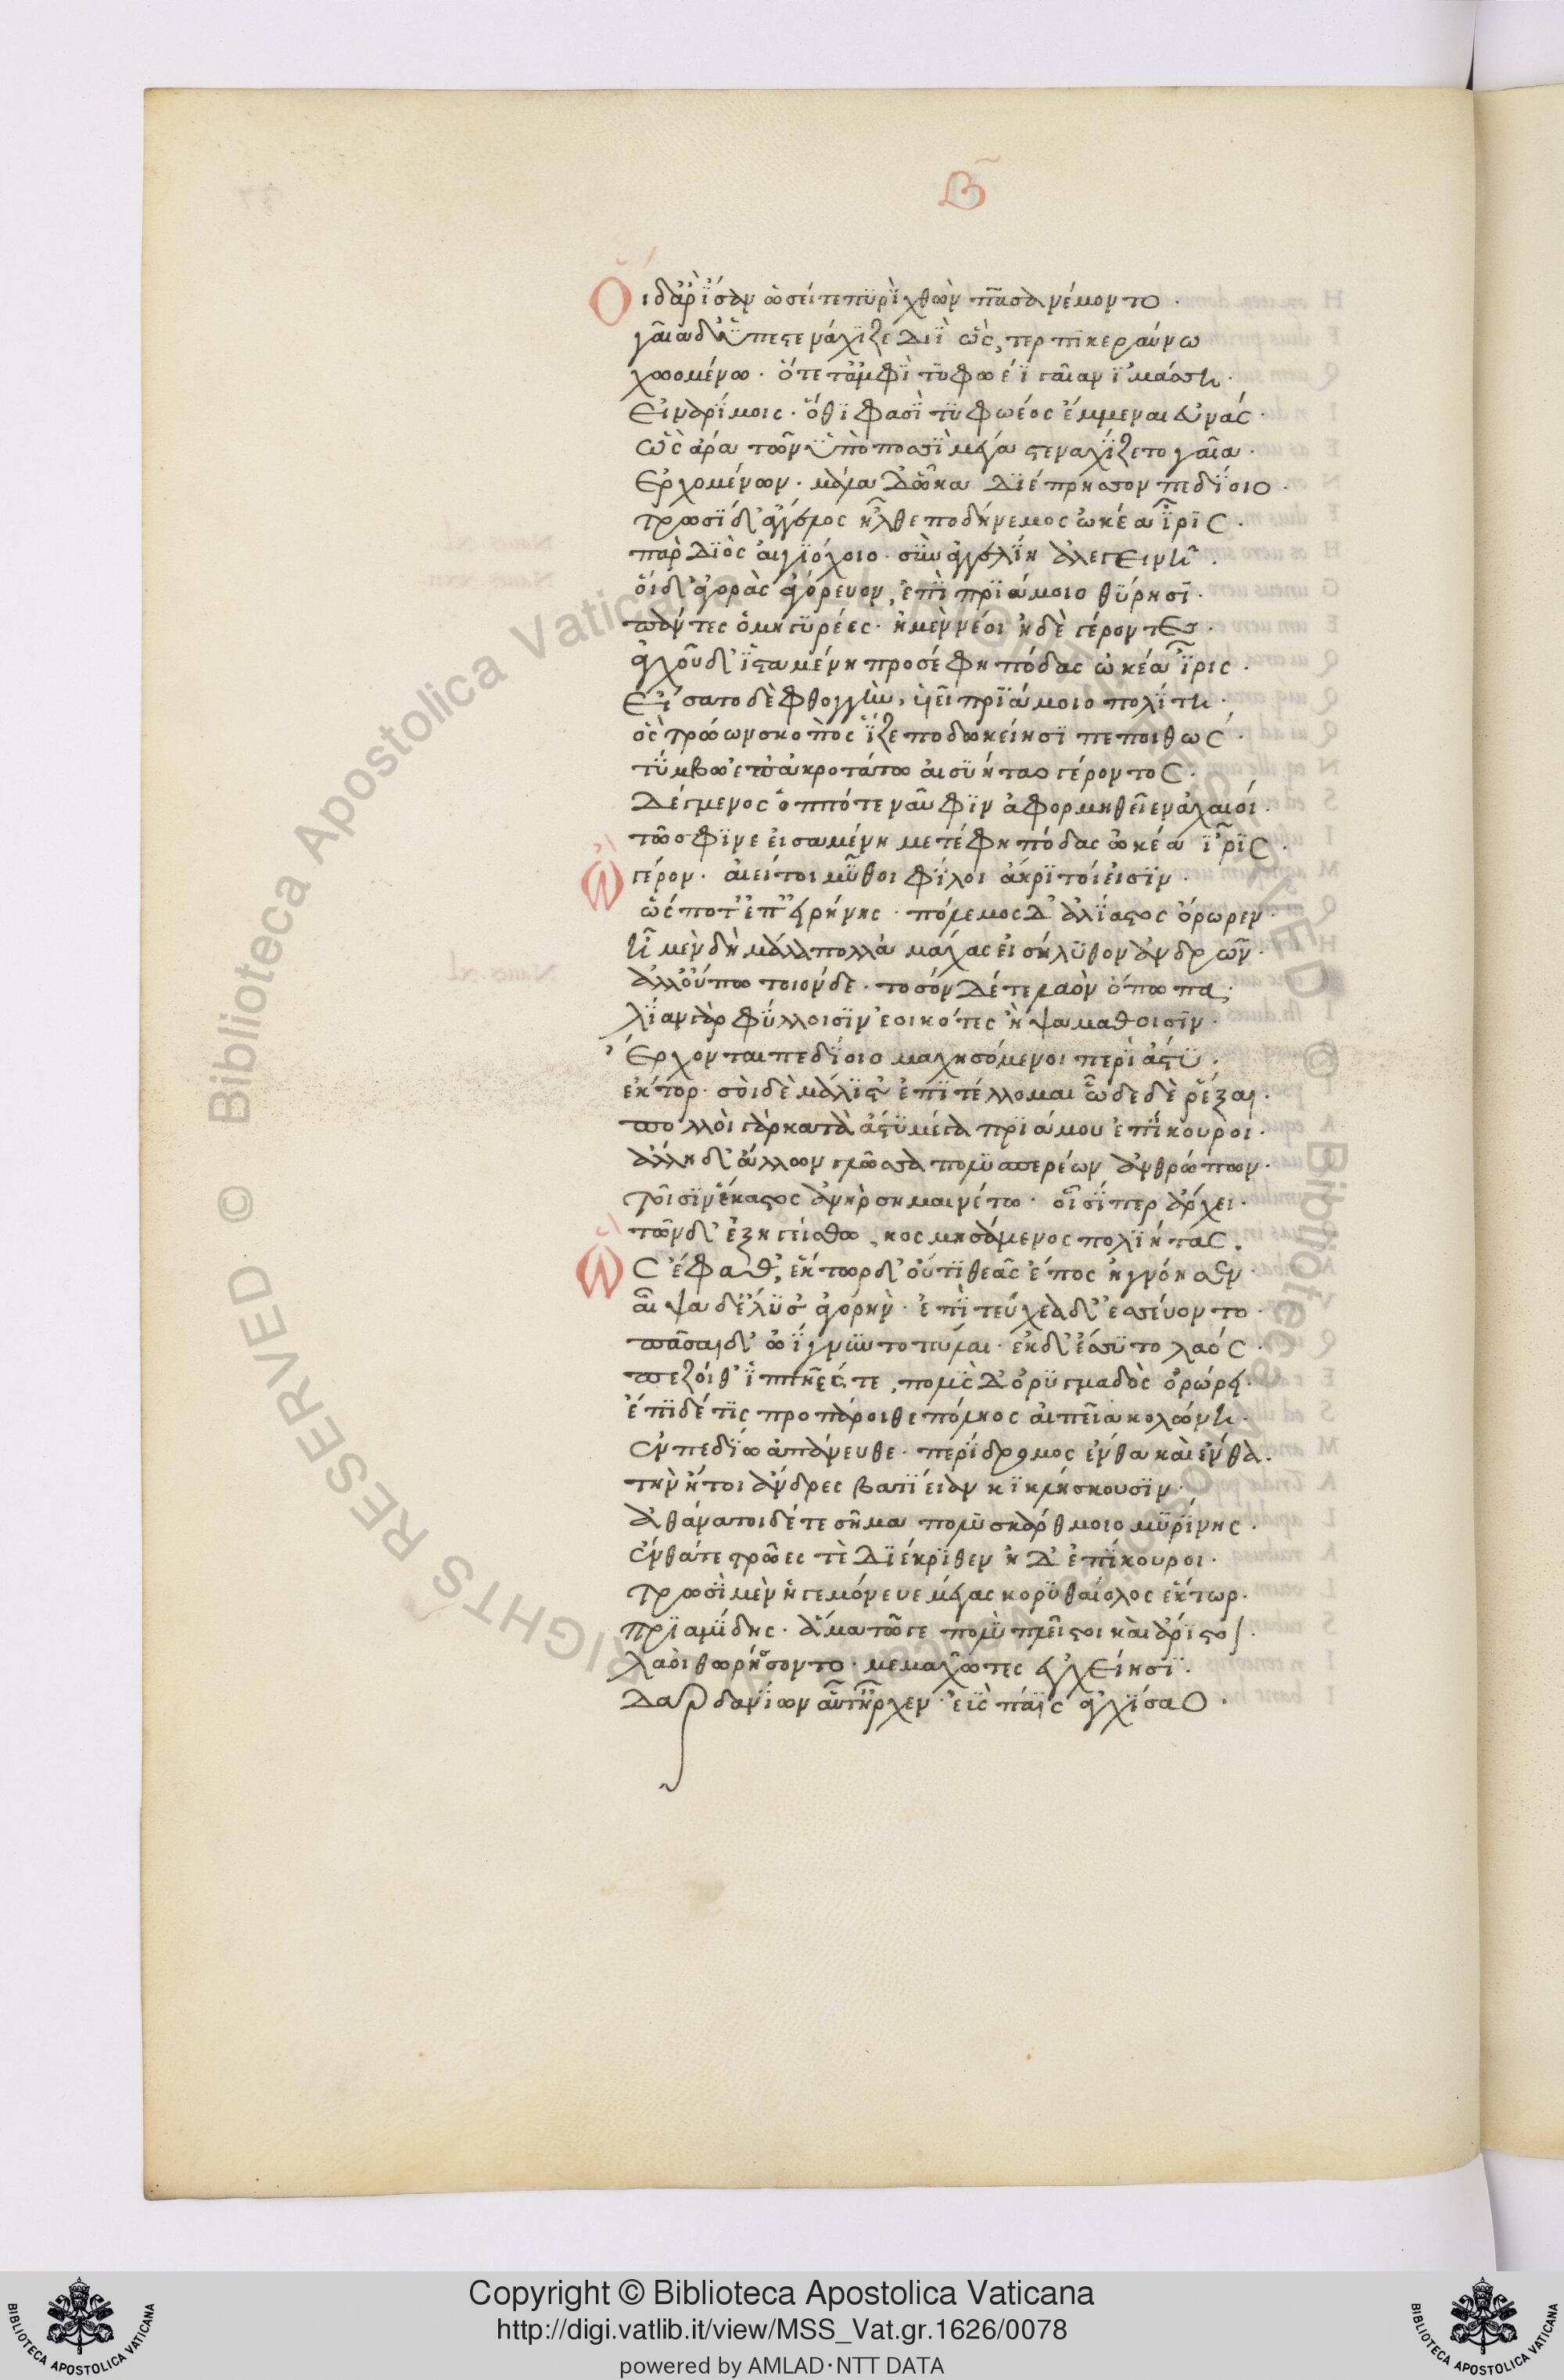 Β
Οἱ δ' ἄρ' ἴσαν ὡσεί τε πυρὶ χθὼν πᾶσα νέμοντο.
γαῖα δ' ὑπεστενάχιζε Διὶ ὣς τερπικεραύνω
χωομένω. ὅτε τ' ἀμφὶ τυφωέϊ γαῖαν ἱμάσση.
Εἰν ἀρίμοις. ὅθι φασὶ τυφωέος ἔμμεναι εὐνάς.
ὣς ἄρα τῶν ὑπὸ ποσσὶ μέγα στεναχίζετο γαῖα.
Ερχομένων. μάλα δ' ὦκα διέπρησσον πεδίοιο.
Τρωσὶ δ' ἄγγελος ἦλθε ποδήνεμος ὠκέα ἶρις.
παρ Διὸς αἰγιόχοιο. σὺν ἀγγελίη ἀλεγεινῆ.
οἱ δ' ἀγορὰς ἀγόρευον, ἐπὶ πριάμοιο θύρησι.
πάντες ὁμηγυρέες. ἠμὲν νέοι ἠδὲ γέροντες.
ἀγχοῦ δ' ἱσταμένη προσέφη πόδας ὠκέα ἶρις.
Εἴσατο δὲ φθογγὴν, υἷϊ πριάμοιο πολίτη.
ὃς τρώων σκοπὸς ἷζε ποδωκείησι πεποιθώς.
τύμβω ἐπ' ἀκροτάτω αἰσυήταο γέροντος.
Δέγμενος ὁππότε ναῦφιν ἀφορμηθεῖεν ἀχαιοί.
τῶ σφιν ἐεισαμένη μετέφη πόδας ὠκέα ἶρις.
Ὦ γέρον. αἰεί τοι μῦθοι φίλοι ἄκριτοί εἰσιν.
ὥς ποτ' ἐπ' εἰρήνης. πόλεμος δ' ἀλίαστος ὄρωρεν.
ἦ μὲν δὴ μάλα πολλὰ μάχας εἰσήλυθον ἀνδρῶν.
ἀλλ' οὔπω τοιόνδε. τοσόνδέ τε λαὸν ὄπωπα.
λίαν γὰρ φύλλοισιν ἐοικότες ἢ ψαμάθοισιν.
Ἔρχονται πεδίοιο μαχησόμενοι περὶ ἄστυ.
ἕκτορ. σοὶ δὲ μάλιστ' ἐπιτέλλομαι ὧδε δὲ ῥέξαι.
πολλοὶ γὰρ κατὰ ἄστυ μέγα πριάμου ἐπίκουροι.
ἄλλη δ' ἄλλων γλῶσσα πολυσπερέων ἀνθρώπων.
τοῖσιν ἕκαστος ἀνὴρ σημαινέτω. οἷσί περ ἄρχει.
τῶν δ' ἐξηγείσθω, κοσμησάμενος πολιήτας.
Ὣς ἔφαθ', ἕκτωρ δ' οὔτι θεᾶς ἔπος ἠγνόησεν.
αἶψα δ' ἔλυσ' ἀγορήν. ἐπὶ τεύχεα δ' ἐσσεύοντο.
πᾶσαι δ' ὠΐγνυντο πύλαι. ἐκ δ' ἔσσυτο λαός.
πεζοί θ' ἱππῆές τε, πολὺς δ' ὀρυμαγδὸς ὀρώρει.
ἔστι δέ τις προπάροιθε πόληος αἰπεῖα κολώνη.
ἐν πεδίω ἀπάνευθε. περίδρομος ἔνθα καὶ ἔνθα.
τὴν ἤτοι ἄνδρες βατίειαν κικλήσκουσιν.
ἀθάνατοι δέ τε σῆμα πολυσκάρθμοιο μυρίνης.
ἔνθά τε τρῶές τε διέκριθεν ἠδ' ἐπίκουροι.
Τρωσὶ μὲν ἡγεμόνευε μέγας κορυθαίολος ἕκτωρ.
πριαμίδης. ἅμα τῶ γε πολὺ πλεῖστοι καὶ ἄριστοι.
λαοὶ θωρήσσοντο. μεμαῶτες ἐγχείησι.
Δαρδανίων αὖτ' ἦρχεν. ἐὺς πάϊς ἀγχίσαο.
© Biblioteca Apostolica Vaticana ALL RIGHTS RESERVED
© Biblioteca Apostolica Vaticana ALL RIGHTS RESERVED
Copyright © Biblioteca Apostolica Vaticana
http://digi.vatlib.it/view/MSS_Vat.gr.1626/0078
powered by AMLAD·NTT DATA
BIBLIOTECA APOSTOLICA VATICANA
BIBLIOTECA APOSTOLICA VATICANA